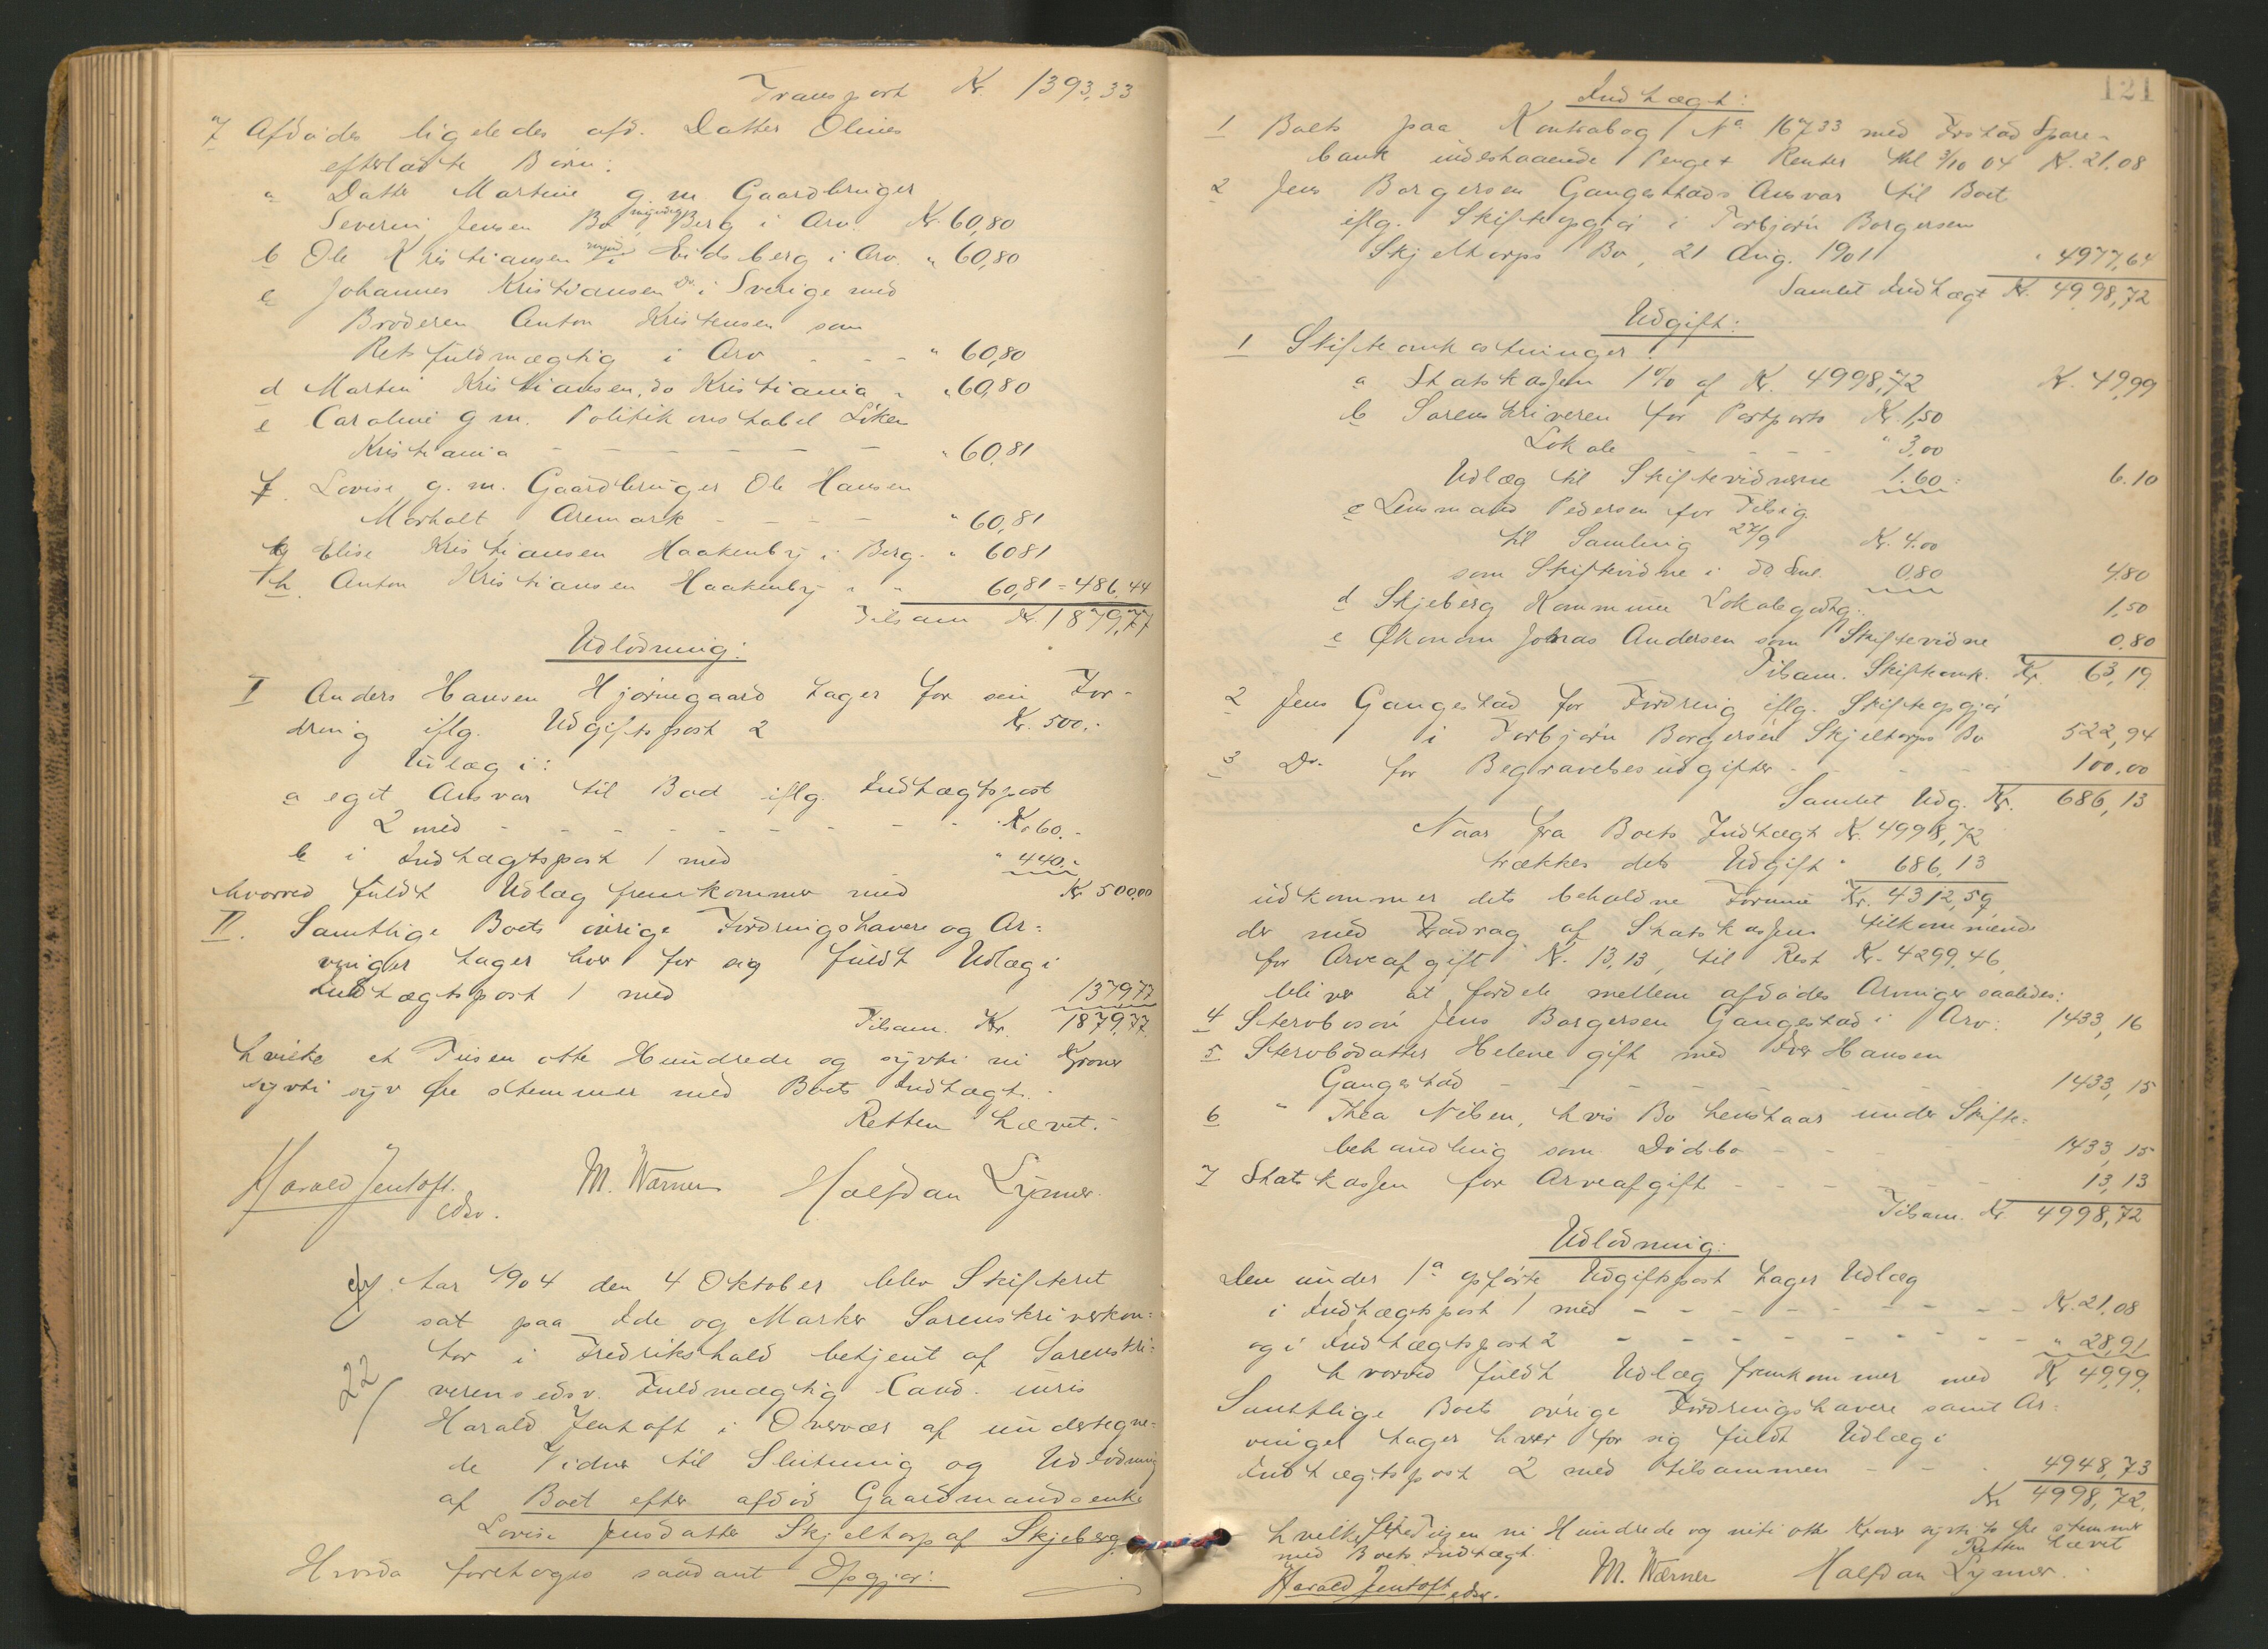 Transport Kr. 1393,33
7 Afdødes ligeledes afd. Datter Olines
efterladte Børn:
a Datter Martine g. m. Gaardbruger
Severin Jensen Bø, Berg i Arv Kr. 60,80
b Ole Kristiansen myndig i Eidsberg i Arv. " 60,80
c Johannes Kristiansen Do. i Sverige med
Broderen Anton Kristensen som
Retsfuldmægtig i Arv - - - " 60,80
d Martin Kristiansen, do Kristiania " " 60,80
e Caroline g m. Politikonstabel Liken
Kristiania - - - - - - " 60,81
f. Lovise g. m. Gaardbruger Ole Hansen
Morholt Aremark - - - - " 60,81
g Elise Kristiansen Haakenby i Berg. " 6081
h. Anton Kristiansen Haakenby " " 60,81 = 486,44
Tilsam Kr. 1879,77
Udlodning:
I Anders Hansen Hjørnegaard tager for sin For-
dring iflg. Udgiftspost 2 Kr. 500.-
Udlæg i:
a eget Ansvar til Boet iflg. Indtægtspost
2 med - - - - - - - - Kr. 60.-
b i Indtægtspost 1 med " 440.-
hvorved fuldt Udlæg fremkommer med Kr 500,00
II. Samtlige Boets øvrige Fordringshavere og Ar-
vinger tager hver for sig fuldt Udlæg i
Indtægtspost 1 med 1379,77
Tilsam. Kr. 1879,77.
hvilke et Tusen otte Hundrede og sytti ni Kroner
sytti syv Øre stemmer med Boets Indtægt. -
Retten hævet. -
Harald Jentoft. M. Wærner Halfdan Lymer.
edsv.
Aar 1904 den 4 Oktober blev Skifteret
sat paa Idde og Marker Sorenskriverkon-
tor i Fredrikshald betjent af Sorenskri-
22 verens edsv. Fuldmægtig Cand. iuris
Harald Jentoft i Overvær af undertegne-
de Vidner til Slutning og Udlodning
af Boet efter afdød Gaardmandsenke
Lovise Jensdatter Skjeltorp af Skjeberg.
Hvorda foretoges saadant Opgjør:
121
Indtægt:
1 Boets paa Kontrabog No 16733 med Idd Spare-
bank indestaaende Penge + Renter til 3/10 04 Kr. 21.08
2 Jens Borgersen Gangestads Ansvar til Boet
iflg. Skifteopgjør i Torbjørn Borgersen
Skjeltorps Bo, 21 Aug. 1901 " 4977,64
Samlet Indtægt Kr. 4998,72
Udgift:
1 Skifteomkostninger:
a Statskassen 1% af Kr. 4998,72 Kr. 49,99
b Sorenskriveren for Postporto Kr. 1,50
Lokale - - - - " 3,00
Udlæg til Skiftevidnerne 1.60 6.10
c Lensmand Pedersen for Tilsig.
til Samling 27/9 Kr. 4.00
som Skiftevidne i do. Saml. 0,80 4,80
d Skjeberg Kommune Lokalegodtg. 1,50
e Økonom Johnas Andersen som Skiftevidne 0,80
Tilsam. Skifteomk. Kr. 63,19
2 Jens Gangestad for Fordring iflg. Skifteopgjør
i Torbjørn Borgersen Skjeltorps Bo 522,94
3 Do. for Begravelsesudgifter - - - - 100,00
Samlet Udg. Kr. 686,13
Naar fra Boets Indtægt Kr. 4998,72
trækkes dets Udgift " 686,13
udkommer dets beholdne Formue Kr. 4312,59
der med Fradrag af Statskassen tilkommende
for Arveafgift Kr. 13,13, til Rest Kr. 4299.46,
bliver at fordele mellem afdødes Arvinger saaledes:
4 Stervbosøn Jens Borgersen Gangestad i Arv: 1433,16
5 Stervbodatter Helene gift med Iver Hansen
Gangestad - - - - - - - 1433,15
6 " Thea Nilsen, hvis Bo henstaar under Skifte-
behandling som Dødsbo - - - - 1433,15
7 Statskassen for Arveafgift - - - - - 13,13
Tilsam. Kr 4998,72
Udlodning:
Den under 1a opførte Udgiftspost tager Udlæg
i Indtægtspost 1 med - - - - - - - - Kr. 21.08
og i Indtægtspost 2 - - - - - - - - - " 28,91
hvorved fuldt Udlæg fremkommer med Kr 49,99.
Samtlige Boets øvrige Fordringshavere samt Ar-
vinger tager hver for sig fuldt Udlæg i
Indtægtspost 2 med tilsammen - - - 4948,73
Kr 4998,72.
hvilke fire Tusen ni Hundrede og nitti otte Kroner sytti to Øre stemmer
med Boets Indtægt. Retten hævet
Harald Jentoft edsv. M. Wærner Halfdan Lymer.